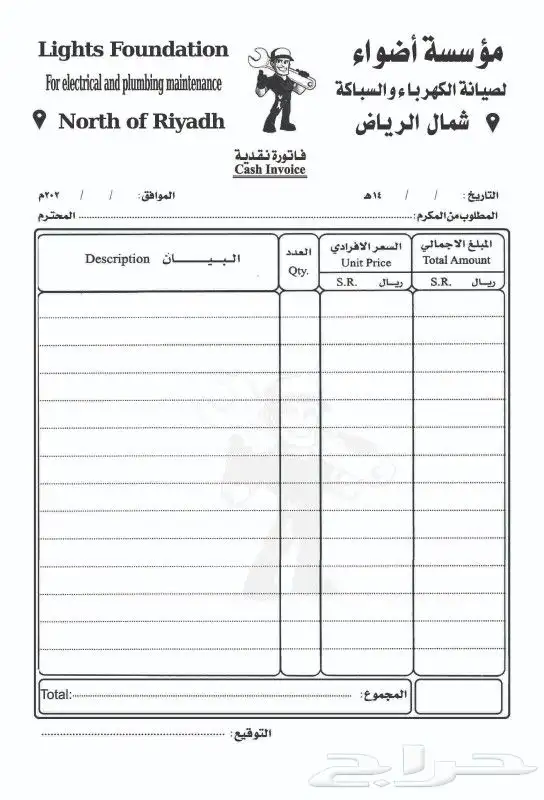 Lights Foundation
For electrical and plumbing maintenance
North of Riyadh
مؤسسة أضواء
لصيانة الكهرباء والسباكة
شمال الرياض
فاتورة نقدية
Cash Invoice
التاريخ: / / ١٤هـ الموافق: / / ٢٠٢م
المطلوب من المكرم: المحترم
البيـــــان Description
العدد
Qty.
السعر الافرادي
Unit Price
ريال S.R.
المبلغ الاجمالي
Total Amount
ريال S.R.
المجموع: Total:
التوقيع:
حراج